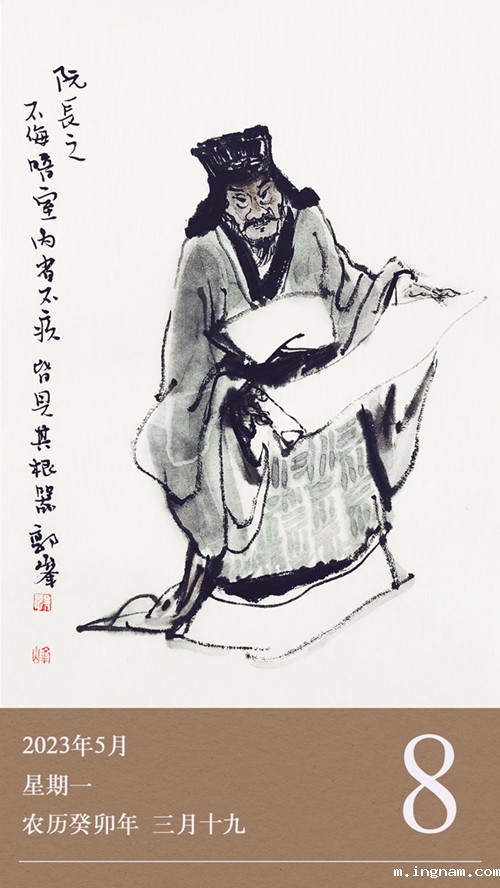 阮長之
不侮暗室内省不疚皆具其根器郭峯
2023年5月
星期一
农历癸卯年 三月十九
8
m.ingnam.com